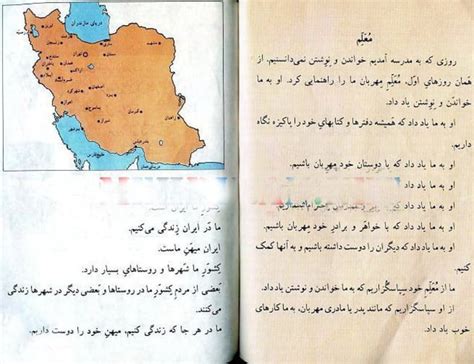 مُعَلِّم
روزی که به مدرسه آمدیم خواندن و نوشتن نمی‌دانستیم. از
همان روزهای اوّل، مُعَلِّم مهربان ما را راهنمایی کرد. او به ما
خواندن و نوشتن یاد داد.
او به ما یاد داد که همیشه دفترها و کتابهای خود را پاکیزه نگاه
داریم.
او به ما یاد داد که با دوستان خود مهربان باشیم.
او به ما یاد داد که به
او به ما یاد داد که با خواهر و برادر خود مهربان باشیم.
او به ما یاد داد که دیگران را دوست داشته باشیم و به آنها کمک
کنیم.
ما از مُعَلِّم خود سپاسگزاریم که به ما خواندن و نوشتن یاد داد.
او به ما، مانند پدر یا مادری مهربان، کارهای
خوب یاد داد.
دریای مازندران
تهران
مشهد
کرمان
شیراز
زاهدان
خلیج فارس
ما در ایران زندگی می‌کنیم.
ایران میهن ماست.
کشورِ ما شهرها و روستاهای بسیار دارد.
بعضی از مردم کشورِ ما در روستاها و بعضی دیگر در شهرها زندگی
می‌کنند.
ما در هر جا که زندگی کنیم، میهن خود را دوست داریم.